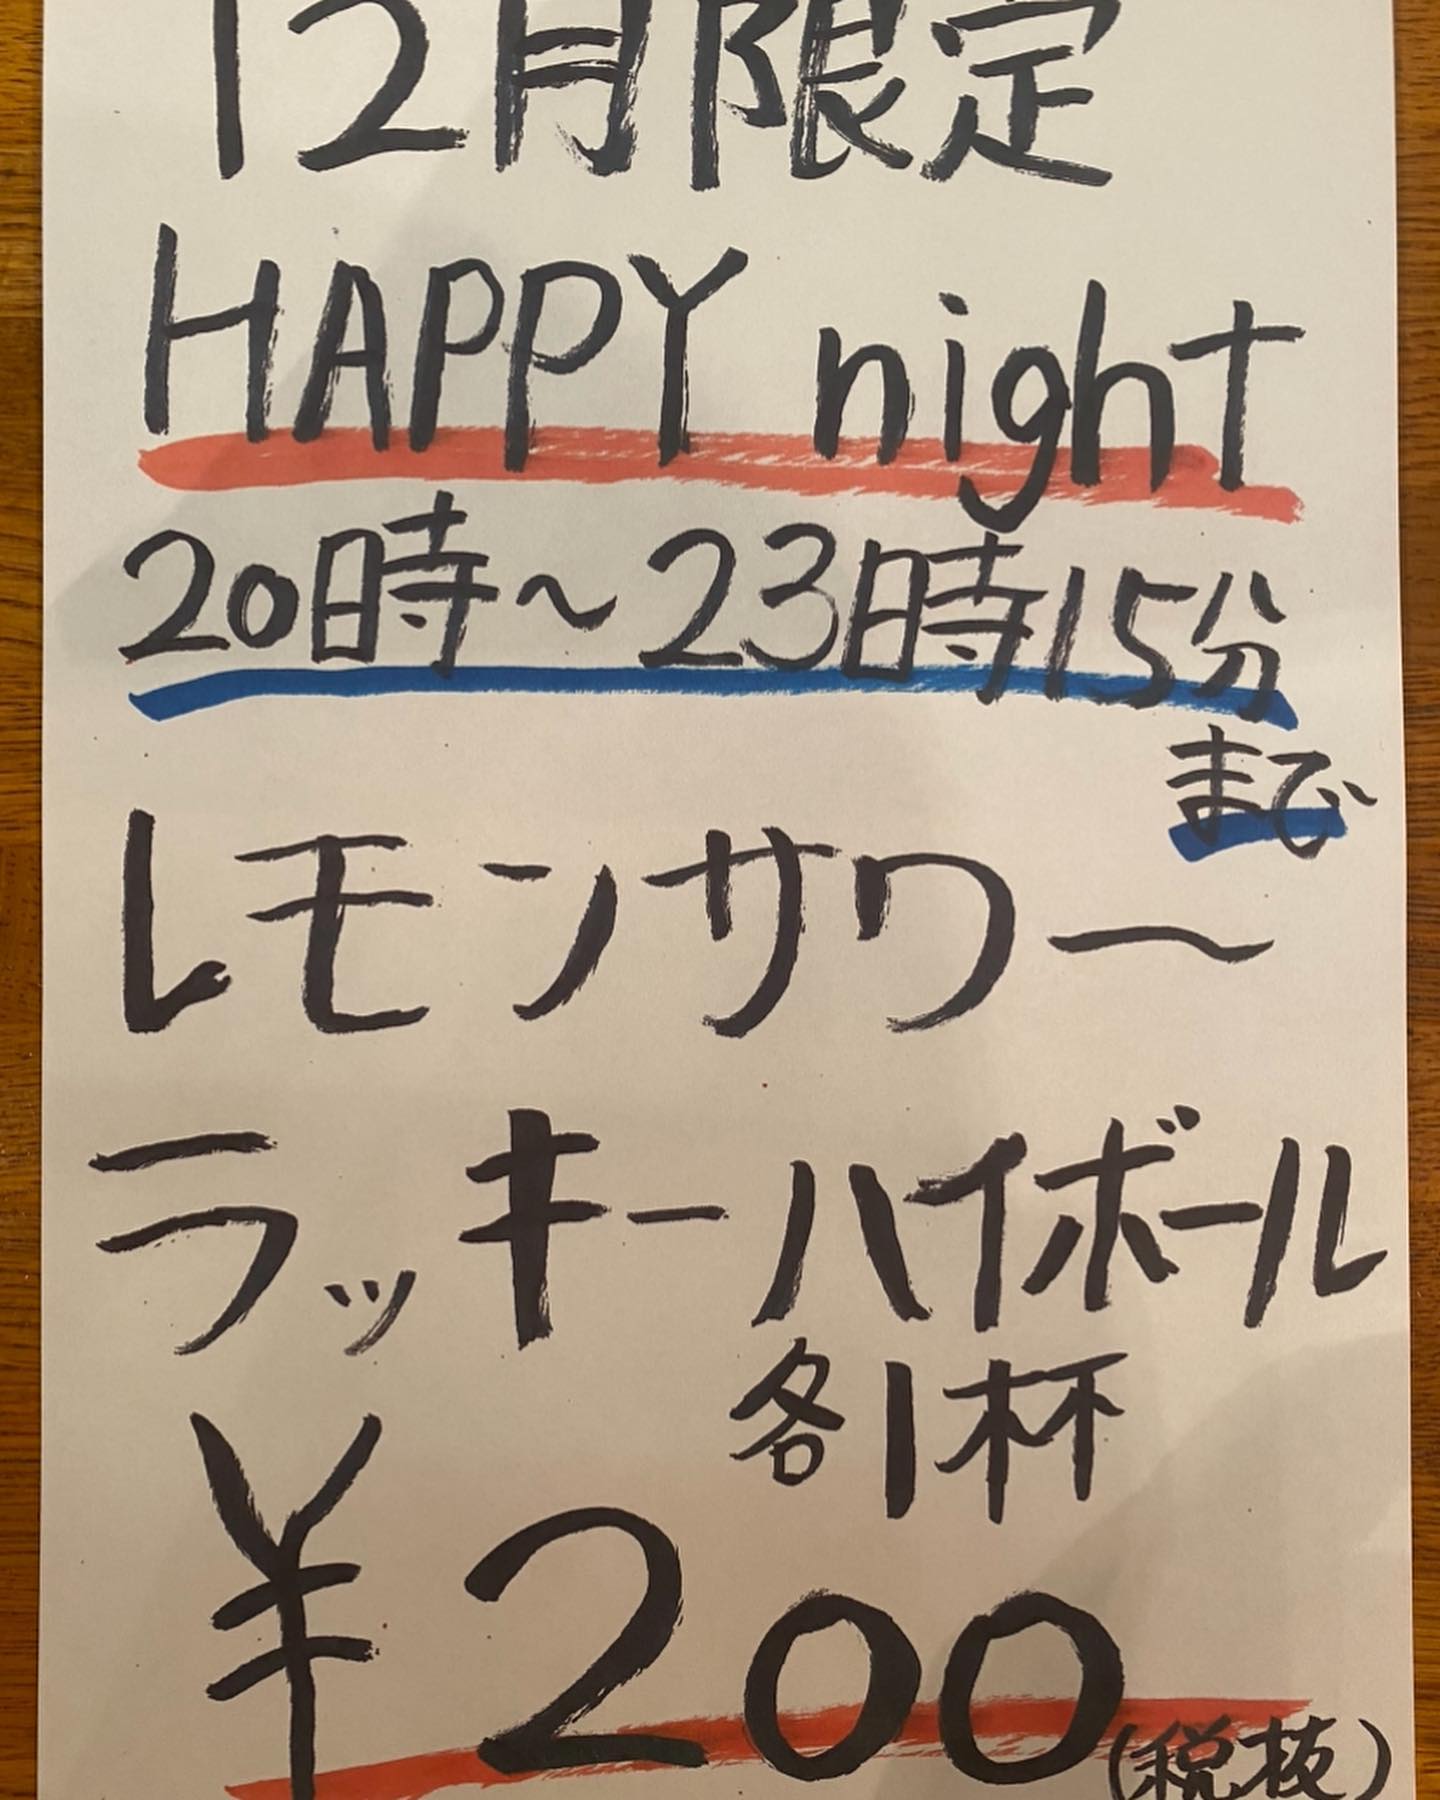 12月限定
HAPPY night
20時～23時15分
まで
レモンサワー
ラッキーハイボール
各1杯
¥200(税抜)